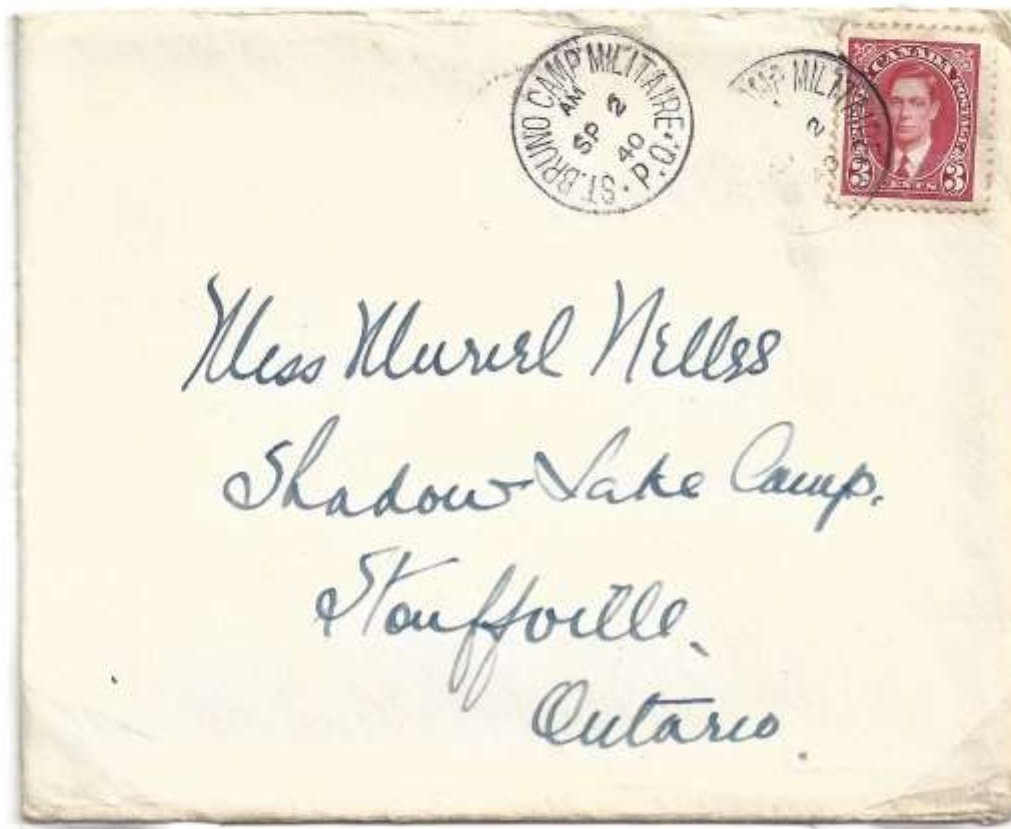 ST. BRUNO CAMP MILITAIRE · P.Q. ·
AM
SP 2
40
MP MILITAIRE
2
CANADA POSTAGE
3 CENTS 3
Miss Muriel Nelles
Shadow Lake Camp.
Stouffville.
Ontario.